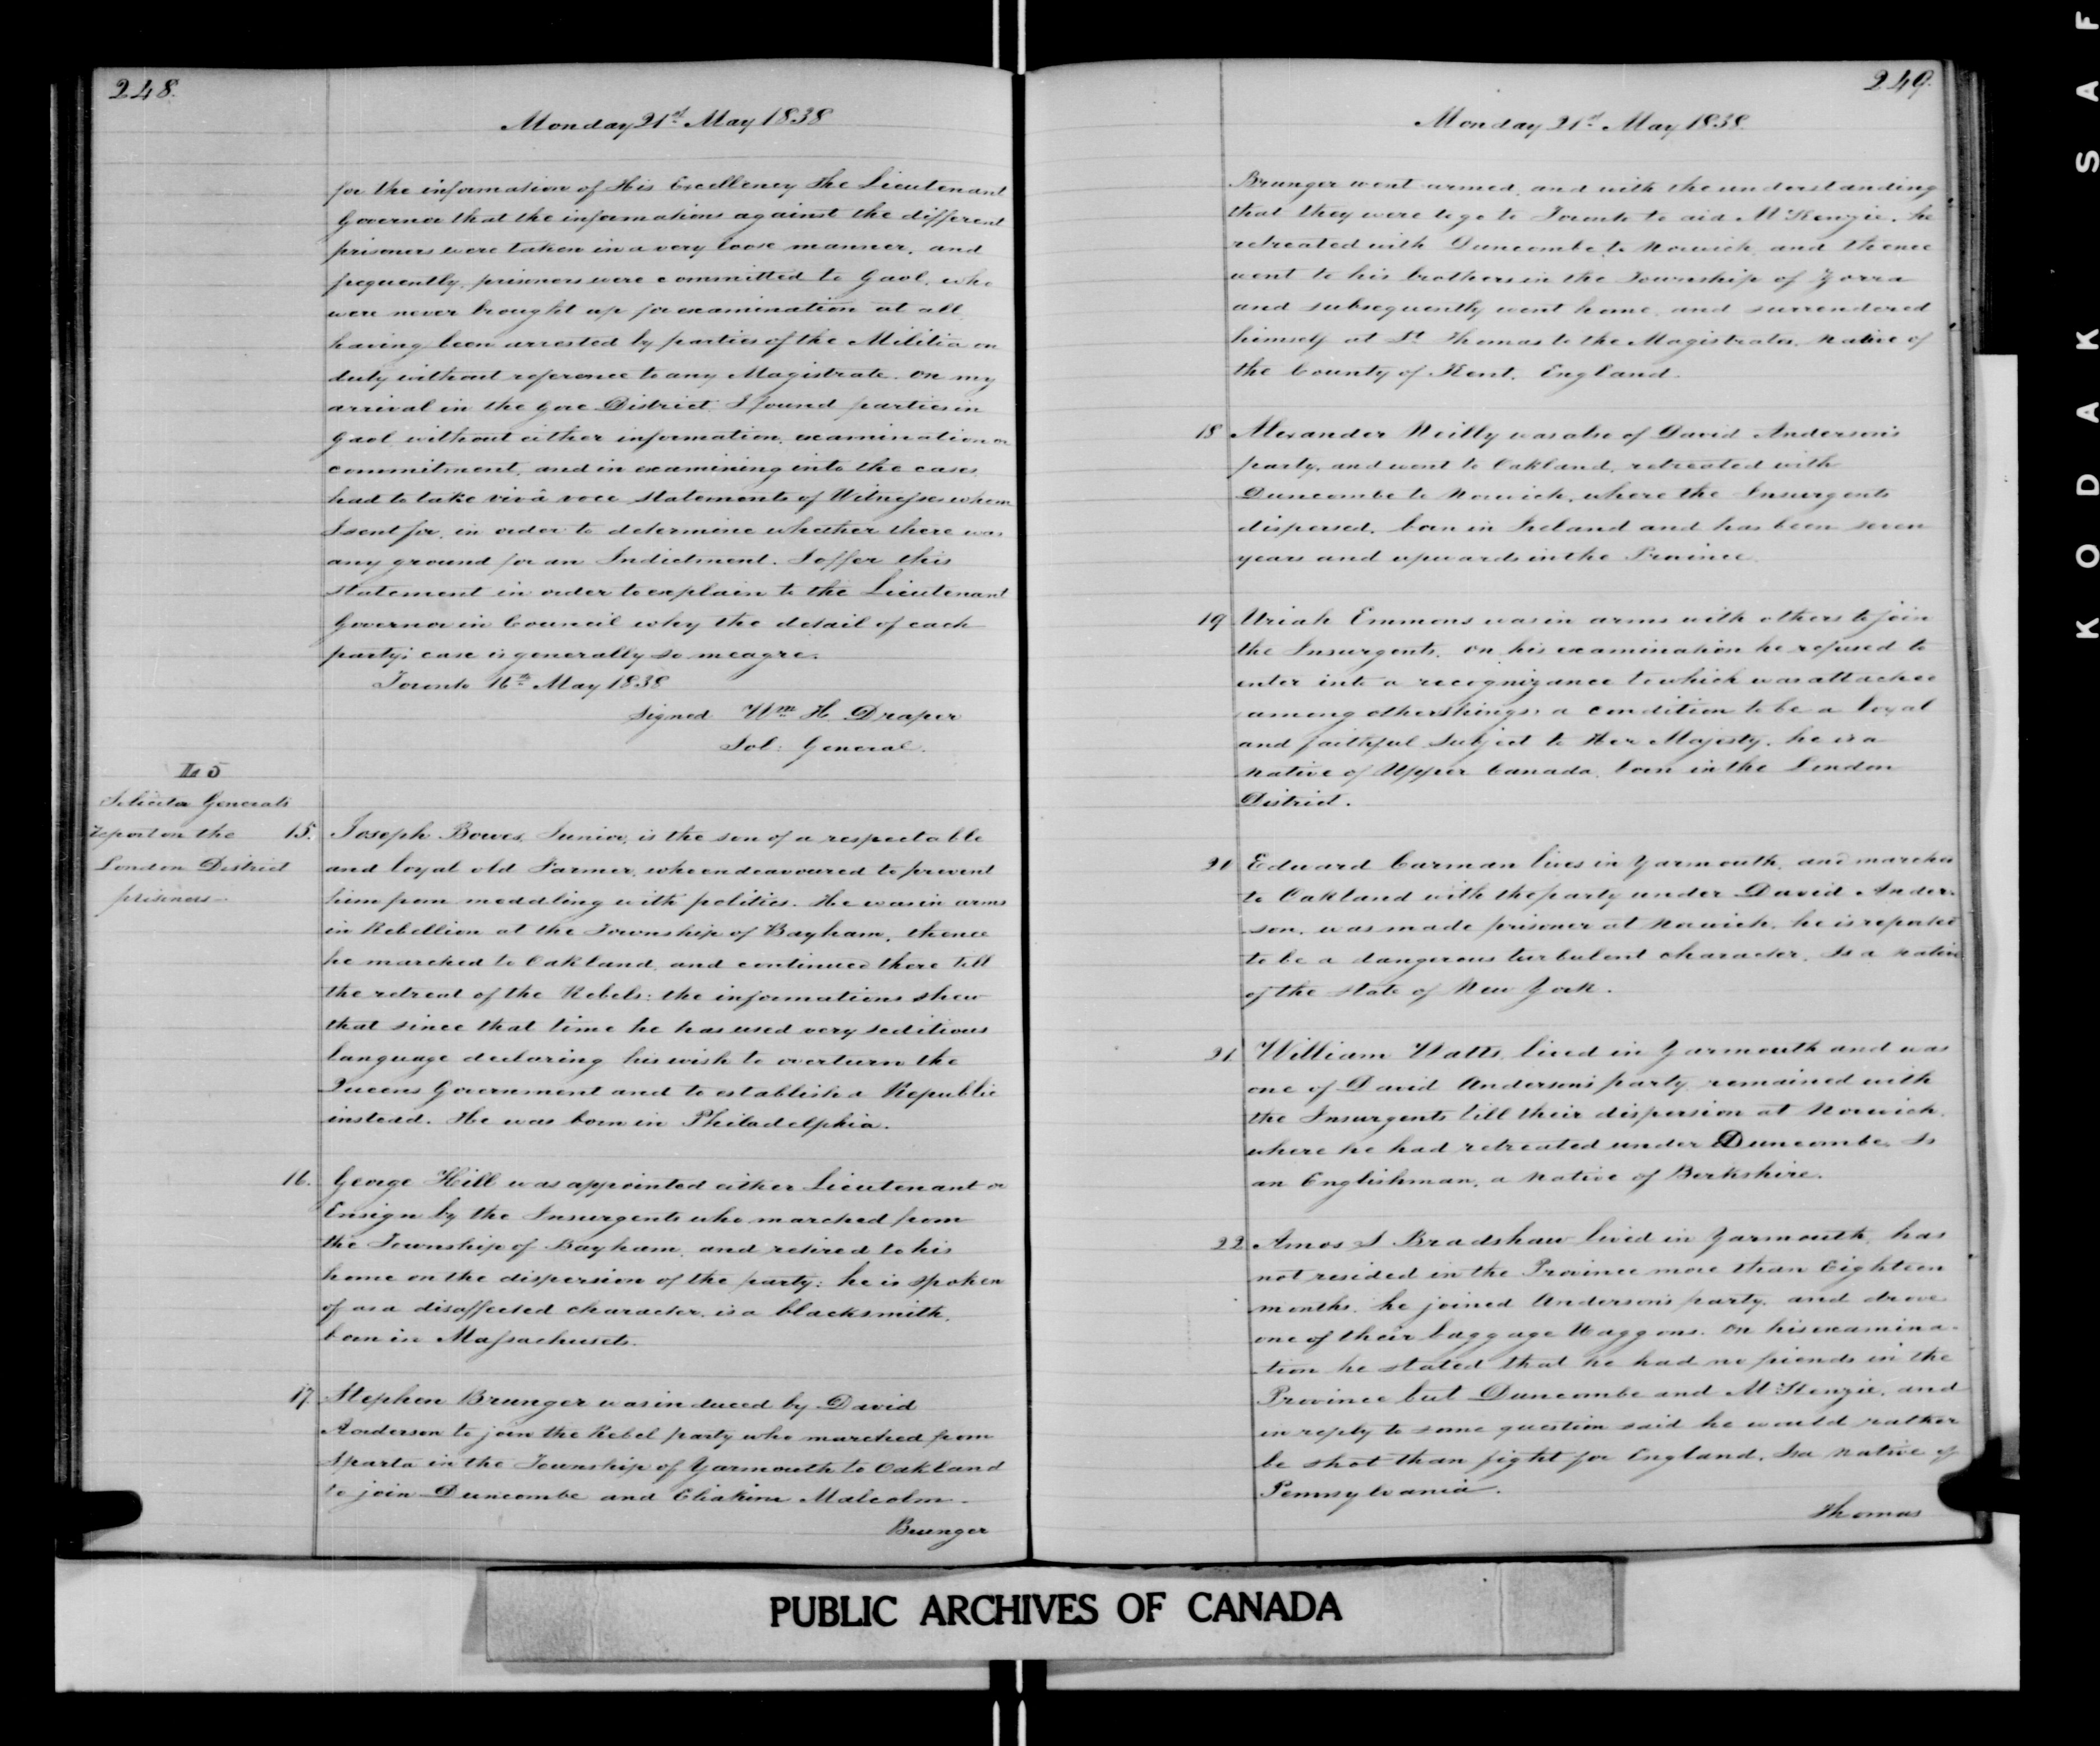 248.
Monday 21st May 1838
for the information of His Excellency the Lieutenant
Governor that the informations against the different
prisoners were taken in a very loose manner, and
frequently, prisoners were committed to Gaol, who
were never brought up for examination at all
having been arrested by parties of the Militia on
duty without reference to any Magistrate. On my
arrival in the Gore District I found parties in
Gaol without either information, examination or
commitment, and in examining into the cases
had to take vivâ voce statements of Witnesses whom
I sent for, in order to determine whether there was
any ground for an Indictment. I offer this
statement in order to explain to the Lieutenant
Governor in Council why the detail of each
party's case is generally so meagre.
Toronto 16th May 1838
Signed Wm H. Draper
Sol: General.
Solicitor Generals
report on the
London District
prisoners
15. Joseph Bowes, Junior, is the son of a respectable
and loyal old Farmer, who endeavoured to prevent
him from meddling with politics. He was in arms
in Rebellion at the Township of Bayham, thence
he marched to Oakland, and continued there till
the retreat of the Rebels: the informations shew
that since that time he has used very seditious
language declaring his wish to overturn the
Queens Government and to establish a Republic
instead. He was born in Philadelphia.
16. George Hill was appointed either Lieutenant or
Ensign by the Insurgents who marched from
the Township of Bayham, and retired to his
home on the dispersion of the party: he is spoken
of as a disaffected character. is a blacksmith,
born in Massachusets.
17. Stephen Brunger was induced by David
Anderson to join the Rebel party who marched from
Sparta in the Township of Yarmouth to Oakland
to join Duncombe and Eliakim Malcolm.
Brunger
249.
Monday 21st May 1838.
Brunger went armed, and with the understanding
that they were to go to Toronto to aid McKenzie, he
retreated with Duncombe to Norwich and thence
went to his brothers in the Township of Zorra
and subsequently went home, and surrendered
himself at St Thomas to the Magistrates. Native of
the County of Kent, England.
18 Alexander Neilly was also of David Anderson's
party, and went to Oakland, retreated with
Duncombe to Norwich, where the Insurgents
dispersed, born in Ireland and has been seven
years and upwards in the Province.
19 Uriah Emmons was in arms with others to join
the Insurgents. On his examination he refused to
enter into a recognizance to which was attached
among other things a condition to be a loyal
and faithful Subject to Her Majesty. he is a
native of Upper Canada, born in the London
District.
20 Edward Carman lives in Yarmouth, and marched
to Oakland with the party under David Ander-
son, was made prisoner at Norwich. he is reported
to be a dangerous turbulent character. Is a native
of the State of New York.
21 William Watts, lived in Yarmouth and was
one of David Anderson's party, remained with
the Insurgents till their dispersion at Norwich,
where he had retreated under Duncombe. Is
an Englishman, a native of Berkshire.
22 Amos S Bradshaw lived in Yarmouth, has
not resided in the Province more than Eighteen
months, he joined Anderson's party, and drove
one of their baggage Waggons. On his examina-
tion he stated that he had no friends in the
Province but Duncombe and McKenzie, and
in reply to some question said he would rather
be shot than fight for England. Is a native of
Pennsylvania.
Thomas
PUBLIC ARCHIVES OF CANADA
KODAK SAF